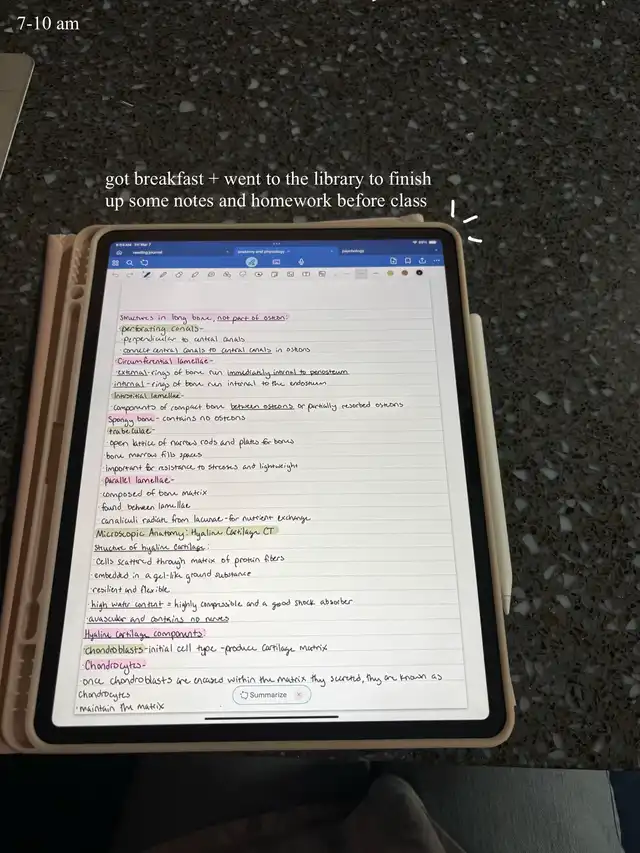 7-10 am
got breakfast + went to the library to finish
up some notes and homework before class
reading journal
anatomy and physiology
Structures in long bone, not part of osteon:
perforating canals-
perpendicular to central canals
connect central canals to central canals in osteons
Circumferential lamellae-
external-rings of bone run immediately internal to periosteum
internal-rings of bone run internal to the endosteum
Interstitial lamellae-
components of compact bone between osteons or partially resorbed osteons
Spongy bone- contains no osteons
trabeculae-
open lattice of narrow rods and plates for bones
bone marrow fills spaces
important for resistance to stresses and lightweight
parallel lamellae-
composed of bone matrix
found between lamellae
canaliculi radiate from lacunae-for nutrient exchange
Microscopic Anatomy: Hyaline Cartilage CT
Structure of hyaline cartilage:
cells scattered through matrix of protein fibers
embedded in a gel-like ground substance
resilient and flexible
high water content = highly compressible and a good shock absorber
avascular and contains no nerves
Hyaline cartilage components:
chondroblasts-initial cell type -produce cartilage matrix
Chondrocytes-
once chondroblasts are encased within the matrix they secreted, they are known as
chondrocytes
maintain the matrix
Summarize